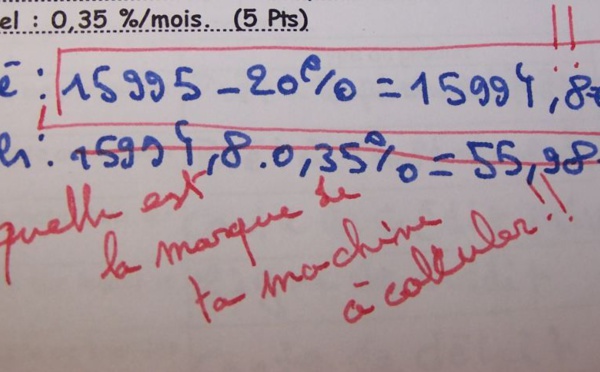 el : 0,35 %/mois. (5 Pts)
é : 15995 - 20% = 15994,8
: 15994,8 . 0,35% = 55,98
quelle est
la marque de
ta machine
à calculer !!